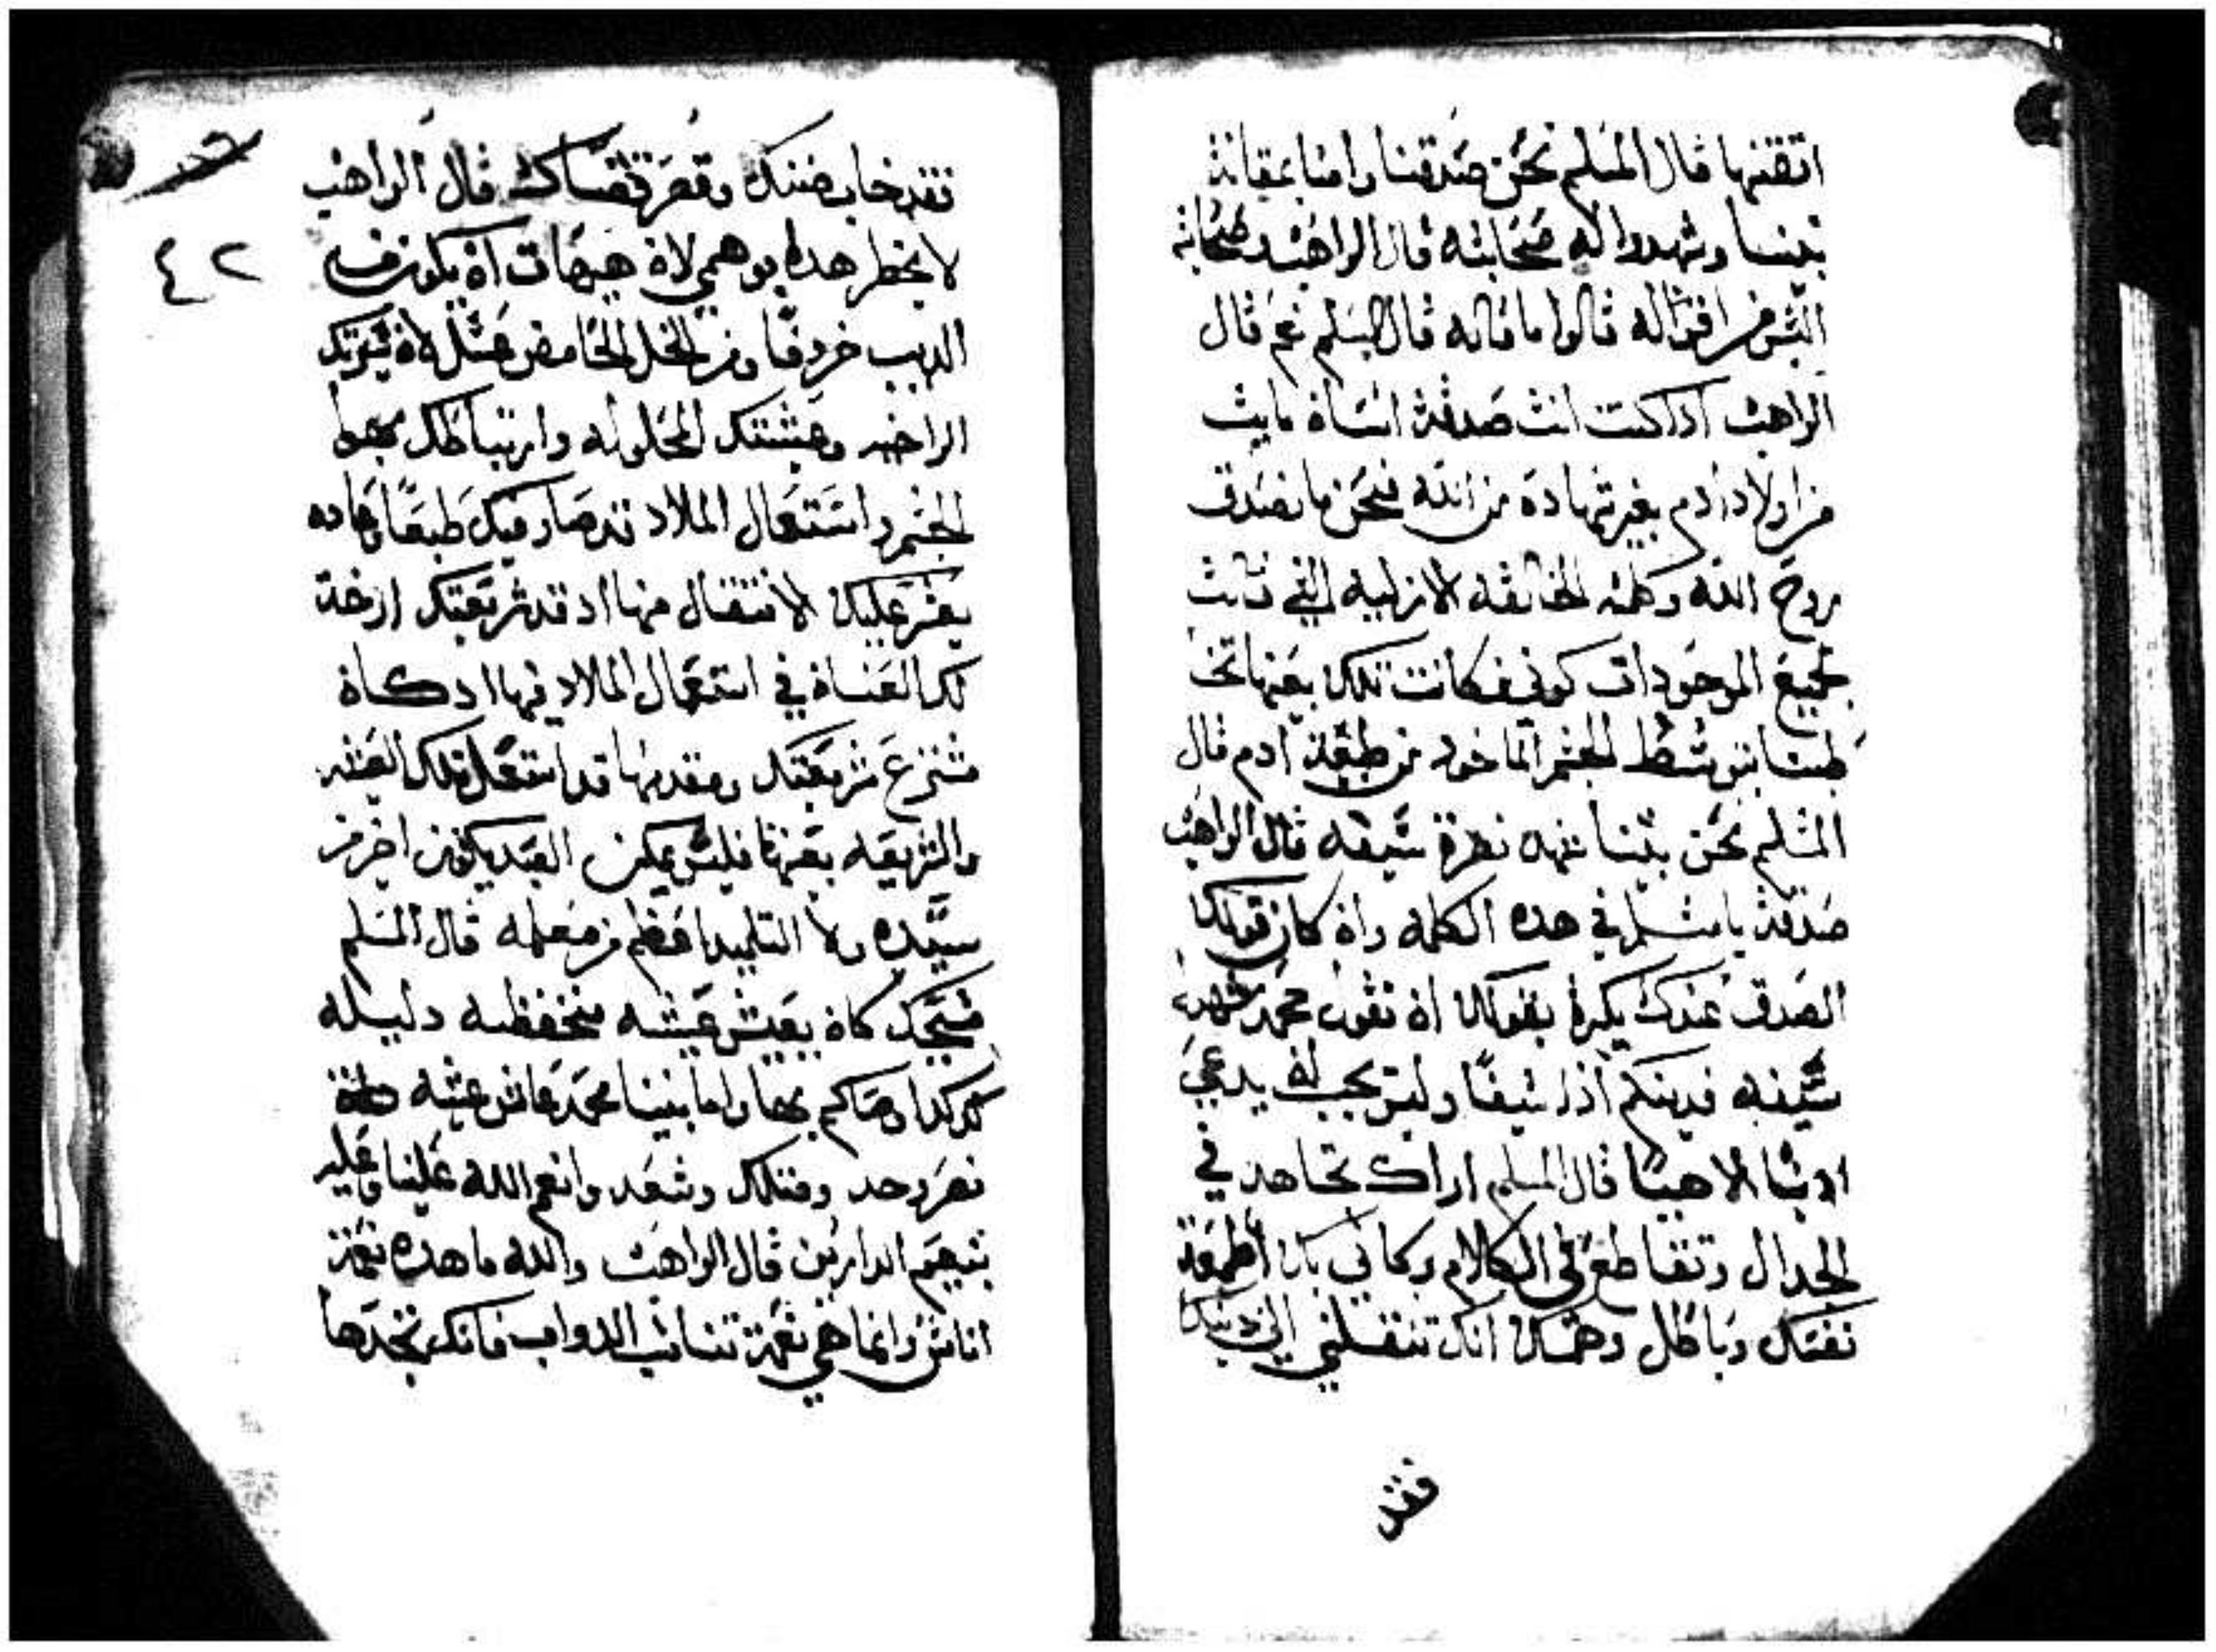 اتقنتها قال المسلم نحن صدقنا وامنا بمقالة
نبينا وشهدوا له صحابته قال الراهب وصحابته
اليس من اقواله قالوا ما قاله قال المسلم نعم قال
الراهب ادا كنت انت صدقت انسان مايت
من اولاد ادم بغير شهادة من الله فنحن ما نصدق
روح الله وكلمته الخالقه الازليه التي قالت
لجميع الموجودات كوني فكانت تلك بعينها
بشط الجسم الماخود من طبيعة ادم قال
المسلم نحن نبينا شهد نصرة سيفه قال الراهب
صدقت يا مسلم في هده الكلمه وان كان قولك
الصدق عندك يكره بقولك ان تقول محمد شهدت
سيفه فدينكم ادا سيفًا وليس يجب ان يدعى
دينًا الاهيًا قال المسلم اراك تجاهد في
الجدال وتتقاطع في الكلام وكاني بك اطمعت
نفسك وباطل وهمك انك تنقلني الى دينك
فقد
٤٢
فقد خاب ضنك وقصرت قصاك قال الراهب
لا يخطر هدا بوهمي لان هيهات ان يكون من
الديب خروفًا ومن الخل الحامض عسل لان شريعتك
الراخيه وعيشتك المحلوله وارتباطك بهوا
الجسم واستعمال الملاد قد صار فيك طبعًا وعاده
يعسر عليك الانتقال منها اد قد شريعتك ارخت
لك العنان في استعمال الملاد فيها اد كان
مشترع شريعتك ومقدمها قد استعمل تلك العيشه
والشريعه بعينها فليس يمكن العبد يكون اخير من
سيده ولا التلميد اعظم من معلمه قال المسلم
مسيحك كان يعيش عيشه منخفظه دليله
كدلك اوصاكم بها واما نبينا محمد عاش عيشه
نصر وحد وفتك وسعد وانعم الله علينا وعليه
بنعيم الدارين قال الراهب والله ما هده نعمة
اناس وانما هي نعمة تناسب الدواب فانك تجدها